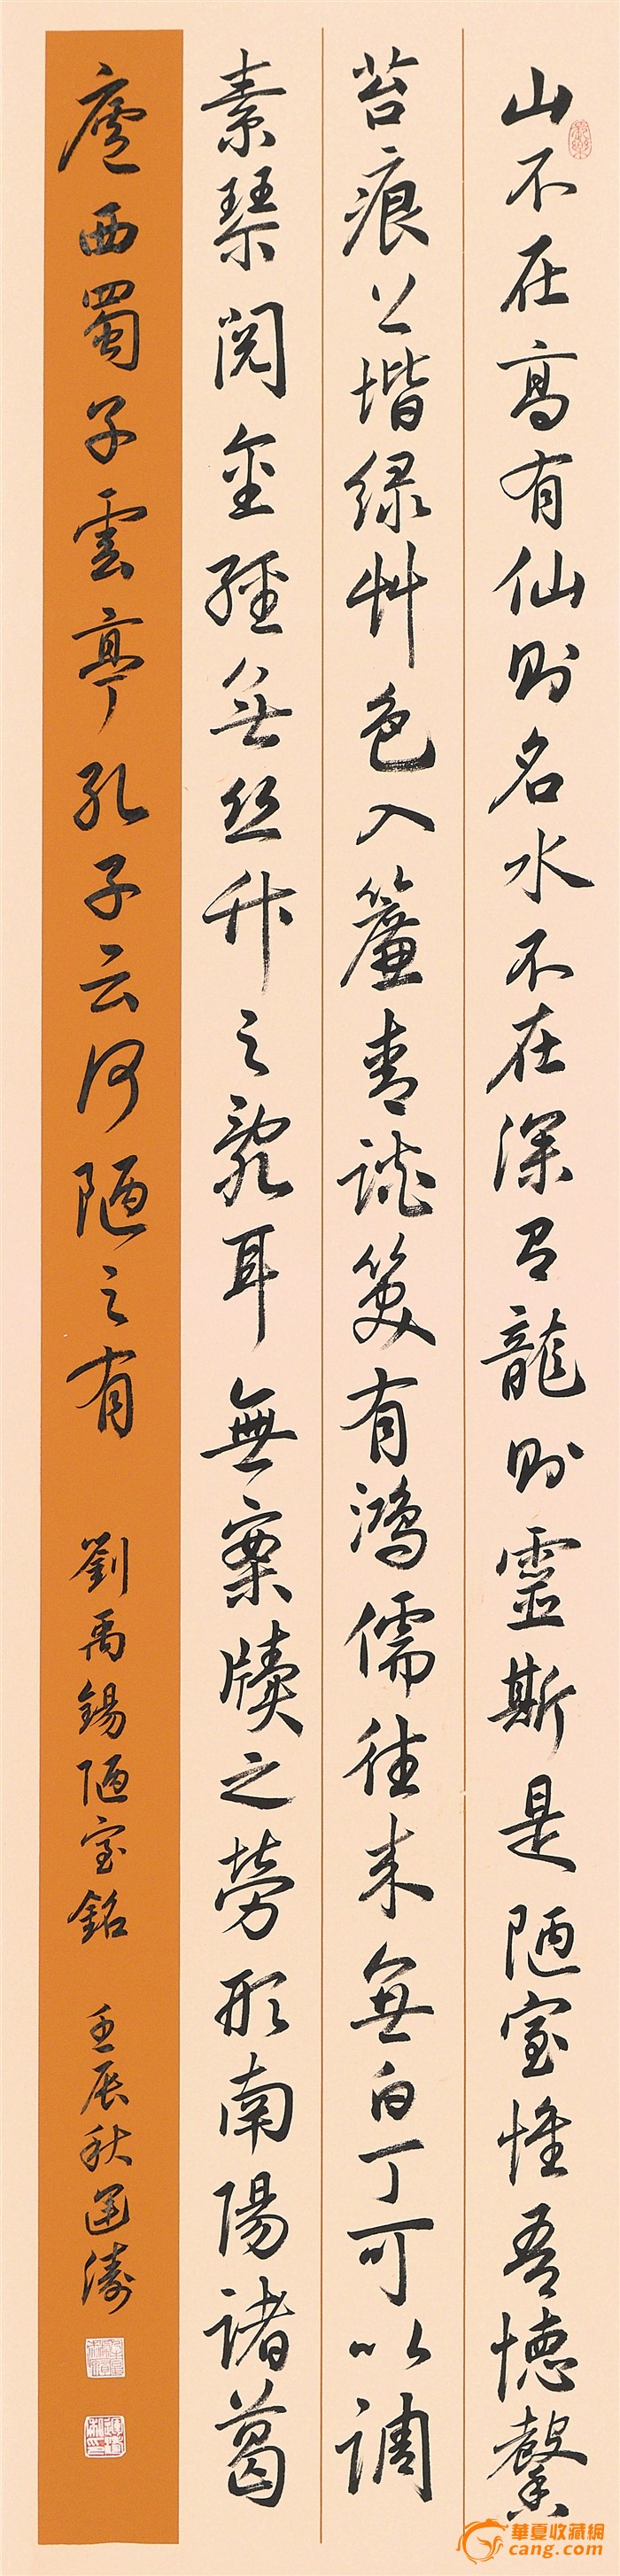 山不在高有仙則名水不在深有龍則靈斯是陋室惟吾德馨
苔痕上堦緑艸色入簾青談笑有鴻儒往来無白丁可以調
素琴閲金經無丝竹之亂耳無案牘之勞形南陽諸葛
廬西蜀子雲亭孔子云何陋之有 劉禹錫陋室銘 壬辰秋運濤
華夏收藏網
cang.com